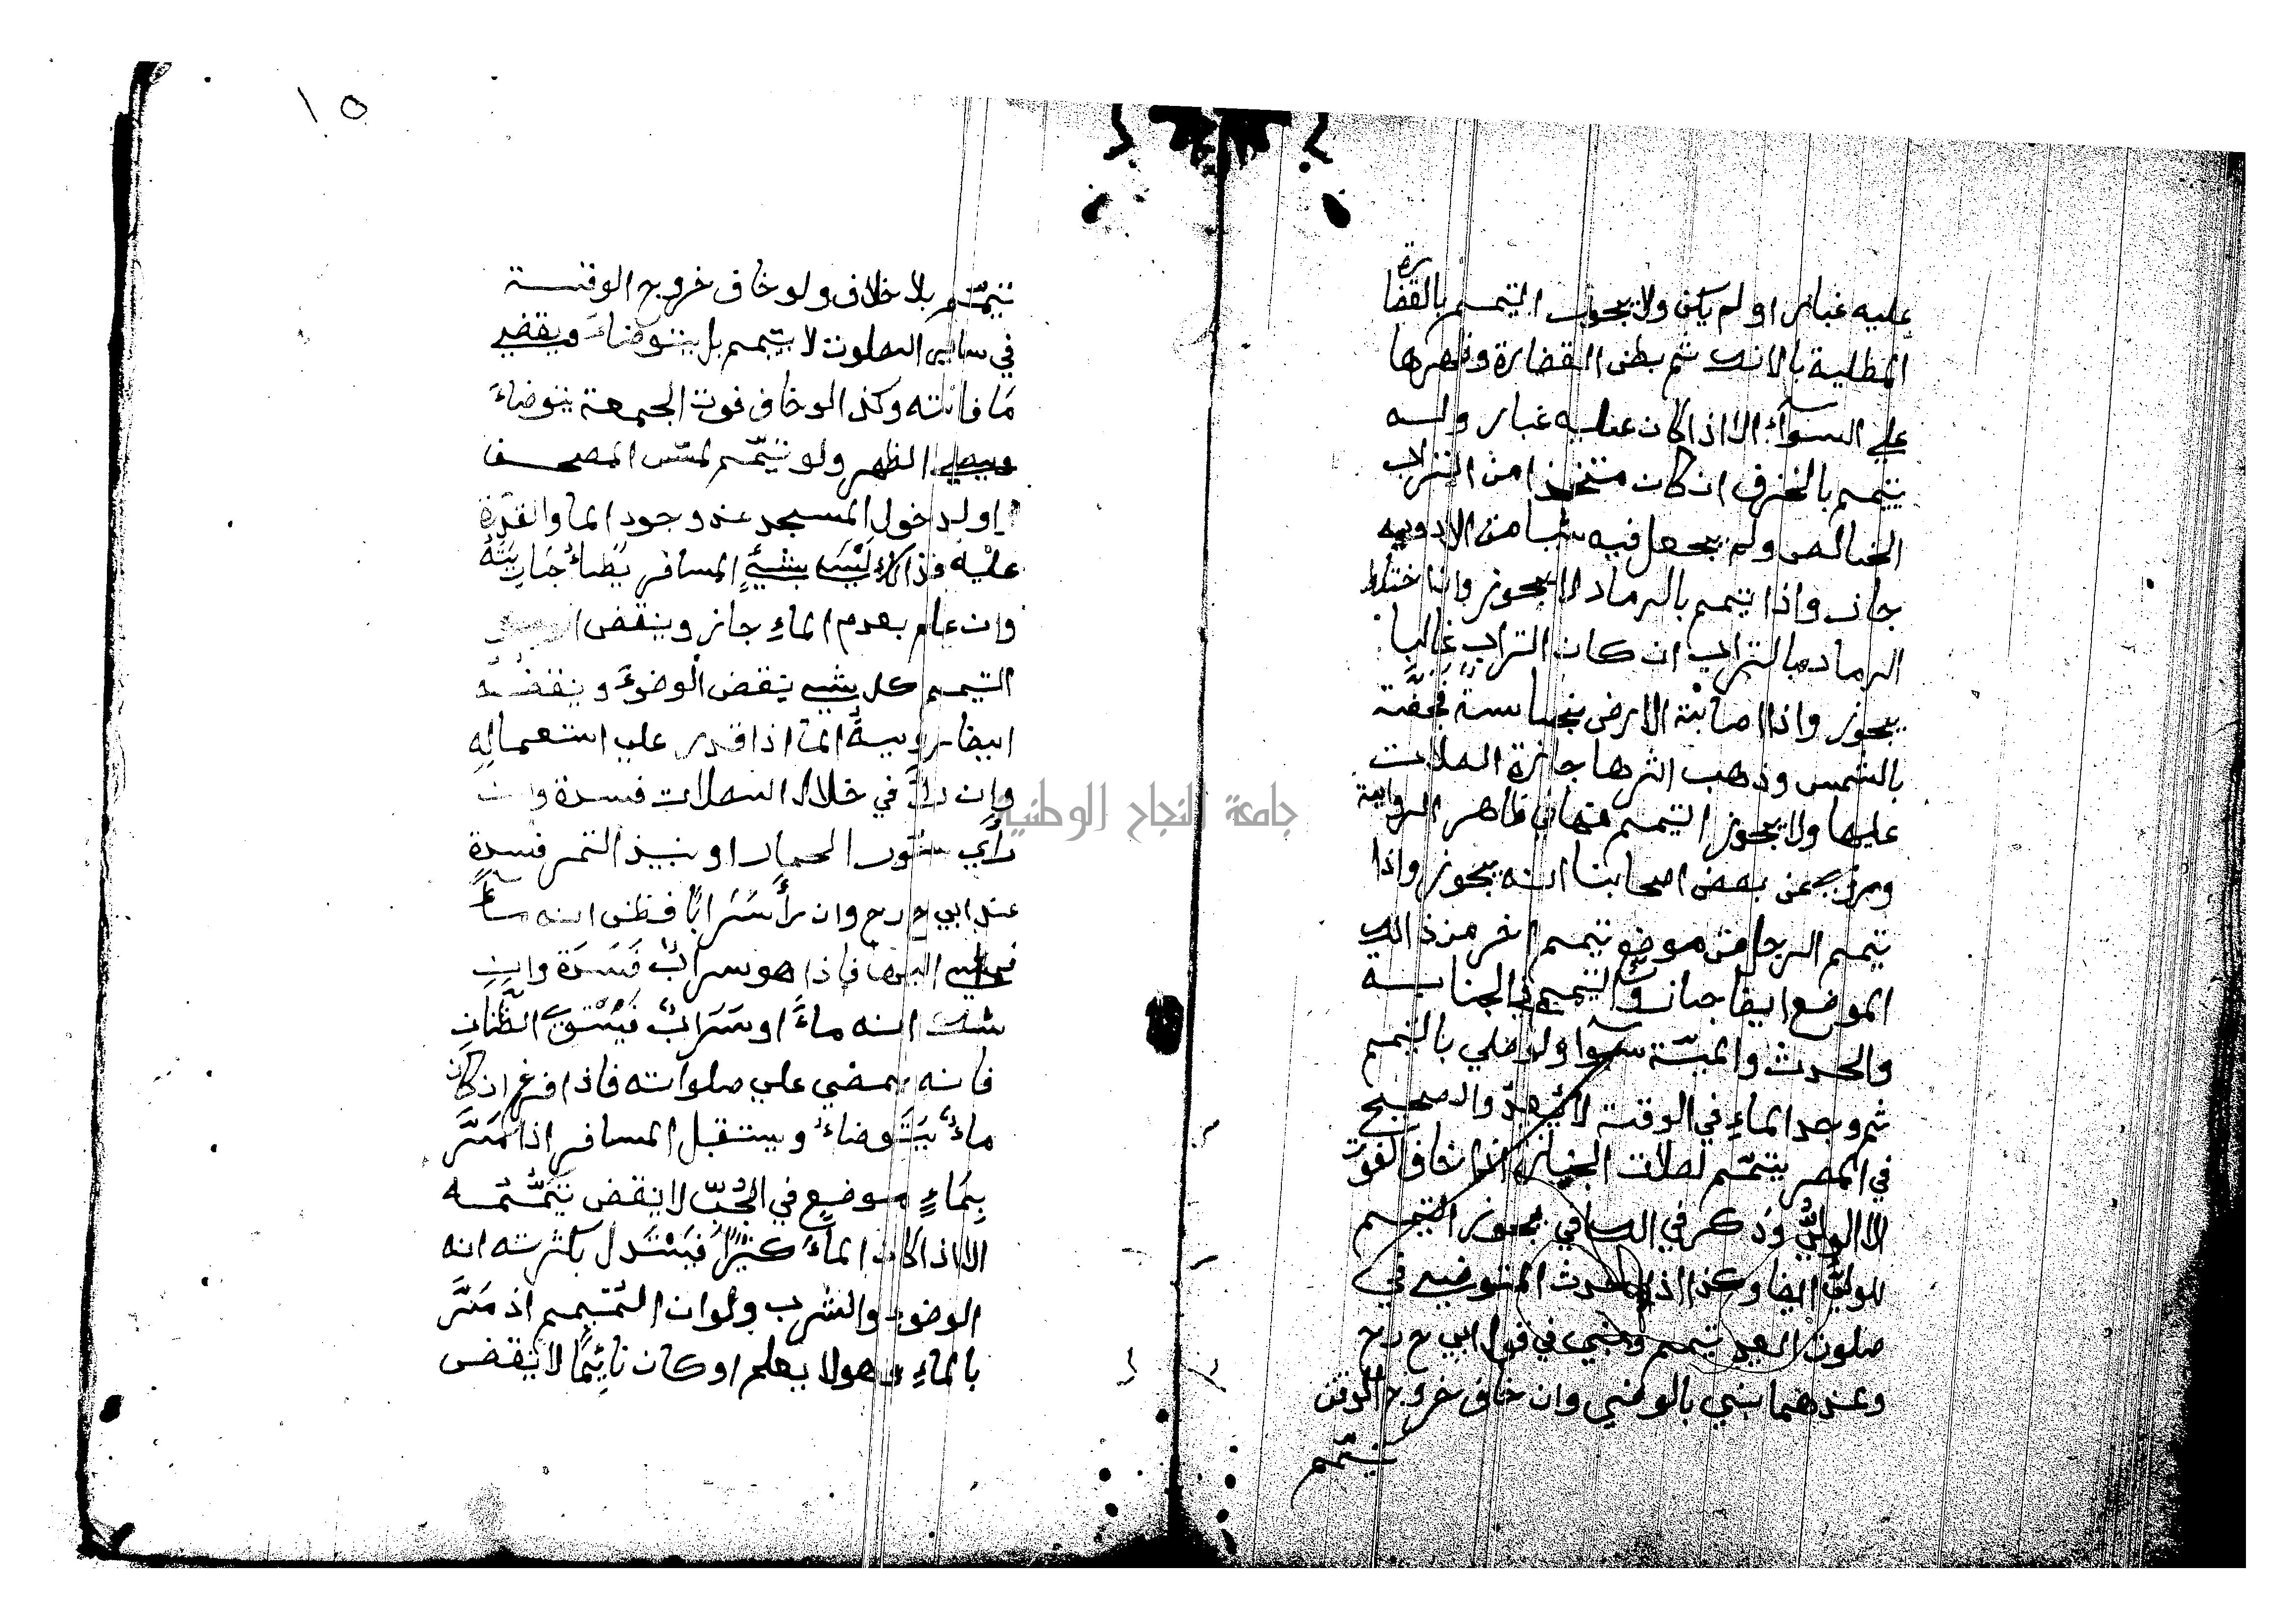 عليه غبار او لم يكن ولا يجوز التيمم بالقضارة
المطلية بالانك ثم بطن القضارة وظهرها
علي السوآء الا اذا كان عليه غبار ولـه
يتيمم بالخزف ان كان متخذا من التراب
الخالص ولم يجعل فيه شيا من الادويه
جاز واذا تيمم بالرماد لا يجوز وان اختلط
الرماد بالتراب ان كان التراب غالبا
يجوز واذا اصابتة الارض نجاسة فجفّتة
بالشمس وذهب اثرها جازة الصلات
عليها ولا يجوز التيمم منها في ظاهر الرواية
وعن بعض اصحابنا انه يجوز واذا
تيمم الرجل من موضع تيمم اخر من ذالك
الموضع ايضا جاز والتيمم في الجنابـه
والحدث والميّتة سوآ ولو صلي بالتيمم
ثم وجد الماءِ في الوقتة لا يُعدّ والصحيح
في المصر يتيمّم لصلات الجنازة اذا خاف الفوت
الا الوليّ وذكر في الكافي يجوز التيمم
للوليّ ايضا وكذا اذا احدث المتوضي في
صلوت العيد تيمم وبني في قول ابي ح رح
وعندهما يبني بالوضي وان خاف خروج الوقت
يتيمّم
١٥
تتيمّم بلا خلاف ولو خاف خروج الوقتـة
في ساير الصلوت لا يتيمم بل يتوضاءَ ويقضي
مَا فاتته وكذا لو خاف فوت الجمعة يتوضاءَ
ويصلي الظهر ولو تيمّم لمسّ المصحف
او لدخول المسجد عند وجود الما والقدرة
عليه فذالك لَيْسَ بشيءٍ المسافر يَطاءُ جَارِيَتَهُ
وان علم بعدم الماءِ جاز وينقض
التيمم كل شيء ينقض الوضوءَ وينقضـه
ايضا روية الما اذا قدر علي استعماله
وان راَ في خلال الصلات فسدة وان
رأي سور الحمار او نبيذ التمر فسدة
عند ابي ح رح وان رأ سَرَابًا فظن انه ماءً
فمشي اليها فاذا هو سرابٌ فَسَدَة وان
شك انه ماءً او سَرَابٌ فيستوي الظنان
فانه يمضي علي صلواته فاذا فرغ ان كان
ماءً يتوضاءُ ويستقبل المسافر اذا مَرَّ
بِمَاءٍ موضع في الجُبّ لا ينقض تيَمُّمـه
الا اذا كان الماءُ كثيرًا فيَسْتَدل بكثرته انه
الوضوء والشرب ولو ان المتيمم اذ مَرَّ
بالماءِ وهو لا يعلم او كان نائمًا لا ينقض
جامعة النجاح الوطنية